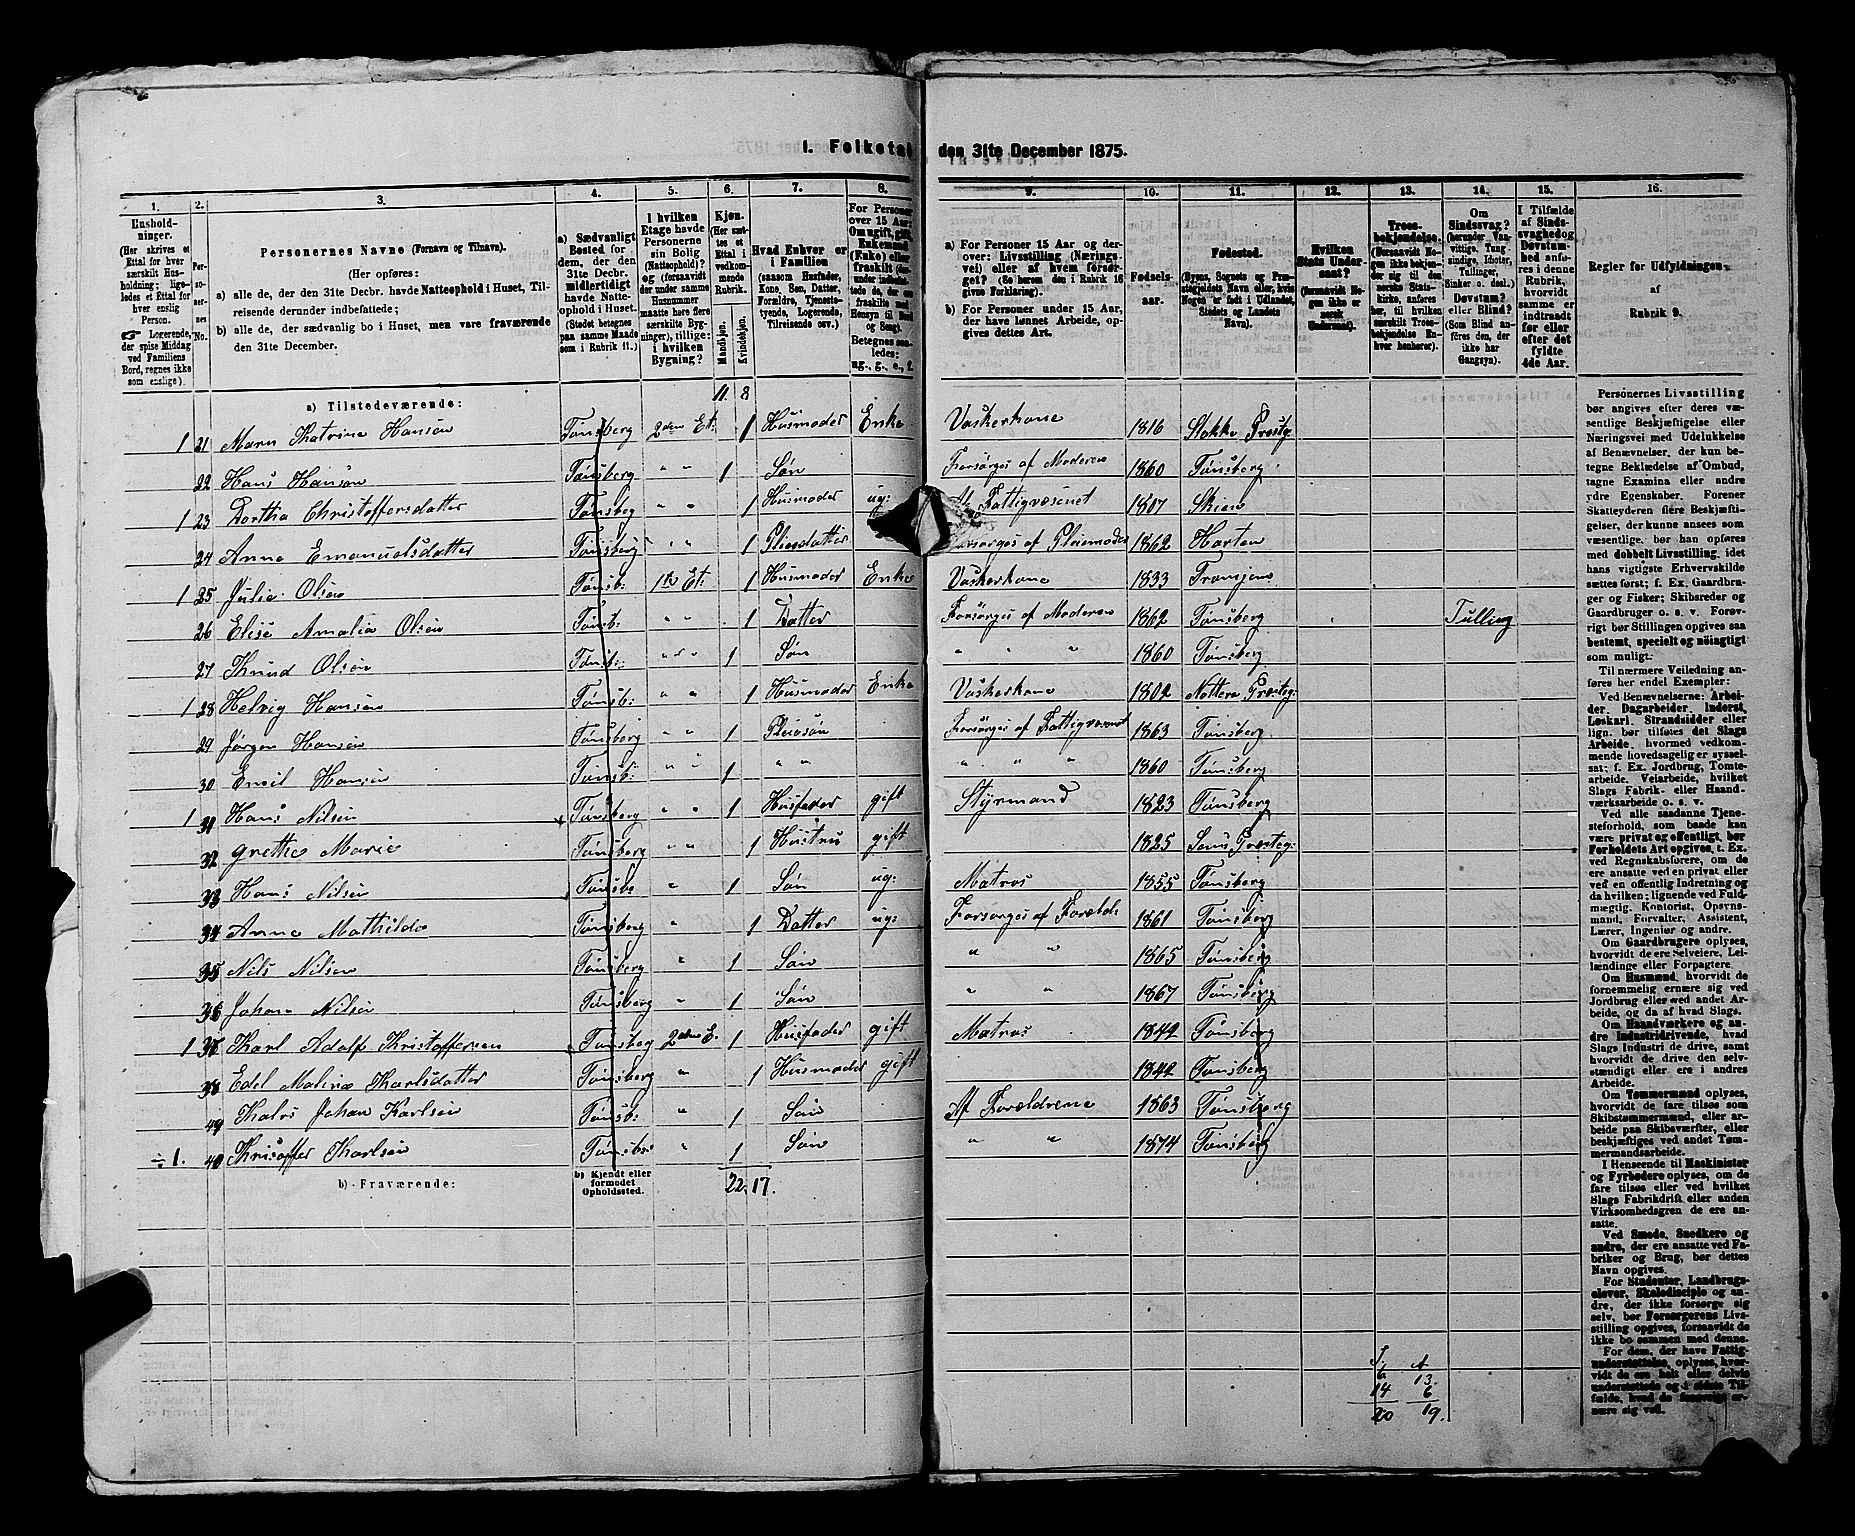 I. Folketal den 31te December 1875.
1. 2. 3. 4. 5. 6. 7. 8. 9. 10. 11. 12. 13. 14. 15. 16.
Husholdninger.
(Her skrives et Ettal for hver særskilt Husholdning; ligeledes et Ettal for hver enslig Person.
Logerende, der spise Middag ved Familiens Bord, regnes ikke som enslige).
Personernes No.
Personernes Navne (Fornavn og Tilnavn).
(Her opføres:
a) alle de, der den 31te Decbr. havde Natteophold i Huset, Tilreisende derunder indbefattede;
b) alle de, der sædvanlig bo i Huset, men vare fraværende den 31te December.
a) Sædvanligt Bosted for dem, der den 31te Decbr. midlertidigt havde Natteophold i Huset. (Stedet betegnes paa samme Maade som i Rubrik 11.)
I hvilken Etage havde Personerne sin Bolig (Natteophold)? og (forsaavidt der under samme Husnummer maatte høre flere særskilte Bygninger), tillige: i hvilken Bygning?
Kjøn. (Her sættes et Ettal i vedkommende Rubrik.
Mandkjøn. Kvindekjøn.
Hvad Enhver er i Familien (saasom Husfader, Kone, Søn, Datter, Forældre, Tjenestetyende, Logerende, Tilreisende osv.)
For Personer over 15 Aar: Om ugift, gift, Enkemand (Enke) eller fraskilt
Betegnes saaledes: ug., g., e., f.
a) For Personer 15 Aar og derover: Livsstilling (Næringsvei) eller af hvem forsørget? (Se herom den i Rubrik 16 givne Forklaring).
b) For Personer under 15 Aar, der have lønnet Arbeide, opgives dettes Art.
Fødselsaar.
Fødested. (Byens, Sognets og Præstegjeldets Navn eller, hvis Nogen er født i Udlandet, Stedets og Landets Navn).
Hvilken Stats Undersaat? (forsaavidt Nogen ikke er norsk Undersaat).
Troesbekjendelse. (Forsaavidt Nogen ikke bekjender sig til den norske Statskirke, anføres her, til hvilken særskilt Troesbekjendelse Enhver henhører).
Om Sindssvag? (herunder Vanvittige, Tungsindige, Idioter, Tullinger, Sinker o. desl.) Døvstum? eller Blind? (Som Blind anføres den, der ikke har Gangsyn).
I Tilfælde af Sindssvaghed og Døvstumhed anføres i denne Rubrik, hvorvidt samme er indtraadt før eller efter det fyldte 4de Aar.
Regler for Udfyldningen af Rubrik 9.
11 8
a) Tilstedeværende:
1 21 Maren Katrine Hansen Tønsberg 2den Et: 1 Husmoder Enke Vaskerkone 1816 Stokke Præstg.
22 Hans Hansen Tønsberg " " 1 Søn Forsørges af Moderen 1860 Tønsberg
1 23 Dorthea Christoffersdatter Tønsberg " " 1 Husmoder ug: Fattigvæsenet 1807 Skien
24 Anne Emanuelsdatter Tønsberg " " 1 Pleiedatter Forsørges af Pleiemoder 1862 Horten
1 25 Julie Olsen Tønsb: 1ste Et: 1 Husmoder Enke Vaskerkone 1833 Tromsø
26 Elise Amalia Olsen Tønsb: " " 1 Datter Forsørges af Moderen 1862 Tønsberg Tulling
27 Knud Olsen Tønsb: " " 1 Søn " " " 1860 Tønsberg
1 28 Helvig Hansen Tønsb: " " 1 Husmoder Enke Vaskerkone 1802 Nøttero Præsteg:
29 Jørgen Hansen Tønsberg " " 1 Pleiesøn Forsørges af Fattigvæsenet 1863 Tønsberg
30 Emil Hansen Tønsb: " " 1 " " " " " 1860 Tønsberg
1 31 Hans Nilsen Tønsberg " " 1 Husfader gift Styrmand 1823 Tønsberg
32 Grethe Marie Tønsberg " " 1 Hustru gift 1825 Sems Præsteg:
33 Hans Nilsen Tønsbe " 1 Søn ug: Matros 1855 Tønsberg
34 Anne Mathilde Tønsberg " 1 Datter ug: Forsørges af Foræld: 1861 Tønsberg
35 Nils Nilsen Tønsberg " 1 Søn " " 1865 Tønsberg
36 Johan Nilsen Tønsberg " 1 Søn " " 1867 Tønsberg
1 37 Karl Adolf Kristoffersen Tønsberg 2den E. 1 Husfader gift Matros 1842 Tønsberg
38 Edel Maline Karlsdatter Tønsberg " 1 Husmoder gift 1842 Tønsberg
49 Johan Karlsen Tønsb: " 1 Søn Af Forældrene 1863 Tønsberg
÷1. 40 Kristoffer Karlsen Tønsb: " 1 Søn " " 1874 Tønsberg
b) Fraværende:
b) Kjendt eller formodet Opholdssted.
22. 17.
6 13.
14 6
20 19.
Personernes Livsstilling bør angives efter deres væsentlige Beskjæftigelse eller Næringsvei med Udelukkelse af Benævnelser, der kun betegne Beklædelse af Ombud, tagne Examina eller andre ydre Egenskaber. Forener Skatteyderen flere Beskjæftigelser, der kunne ansees som væsentlige, bør han opføres med dobbelt Livsstilling, idet hans vigtigste Erhvervskilde sættes først; f. Ex. Gaardbruger og Fisker; Skibsreder og Gaardbruger o. s. v. Forøvrigt bør Stillingen opgives saa bestemt, specielt og nøiagtigt som muligt.
Til nærmere Veiledning anføres her endel Exempler:
Ved Benævnelserne: Arbeider, Dagarbeider, Inderst, Løskarl, Strandsidder eller lign. bør tilføies det Slags Arbeide, hvormed vedkommende hovedsagelig er sysselsat; f. Ex. Jordbrug, Tomtearbeide, Veiarbeide, hvilket Slags Fabrik- eller Haandværksarbeide o. s. v.
Ved alle saadanne Tjenesteforhold, som baade kan være privat og offentligt, bør Forholdets Art opgives, t. Ex. ved Regnskabsførere, om de ere ansatte ved en privat eller ved en offentlig Indretning og da hvilken; lignende ved Fuldmægtig, Kontorist, Opsynsmand, Forvalter, Assistent, Lærer, Ingeniør og andre.
Om Gaardbrugere oplyses, hvorvidt de ere Selveiere, Leilændinge eller Forpagtere.
Om Husmænd, hvorvidt de fornemmelig ernære sig ved Jordbrug eller ved andet Arbeide, og da af hvad Slags.
Om Haandværkere og andre Industridrivende, hvad Slags Industri de drive, samt hvorvidt de drive den selvstændigt eller ere i andres Arbeide.
Om Tømmermænd oplyses, hvorvidt de fare tilsøs som Skibstømmermænd, eller arbeide paa Skibsværfter, eller beskjæftiges ved andet Tømmermandsarbeide.
I Henseende til Maskinister og Fyrbødere oplyses, om de fare tilsøs eller ved hvilket Slags Fabrikdrift eller anden Virksomhedsgren de ere ansatte.
Ved Smede, Snedkere og andre, der ere ansatte ved Fabriker og Brug, bør dettes Navn opgives.
For Studenter, Landbrugselever, Skoledisciple og andre, der ikke forsørge sig selv, bør Forsørgerens Livsstilling opgives, forsaavidt de ikke bo sammen med denne.
For dem, der have Fattigunderstøttelse, oplyses, hvorvidt de ere helt eller delvis understøttede og i sidste Tilfælde, hvad de forøvrigt ernære sig ved.